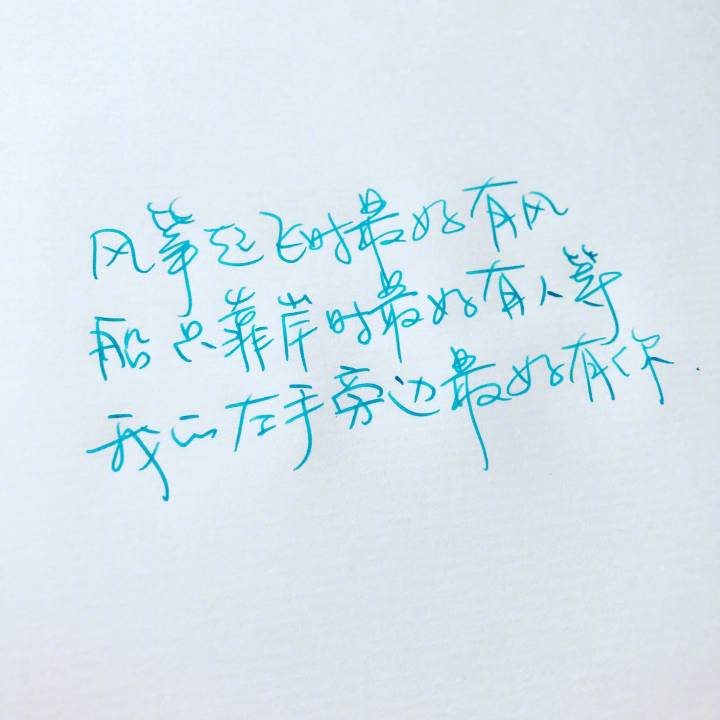 风筝起飞时最好有风
船只靠岸时最好有人等
我的左手旁边最好有你.